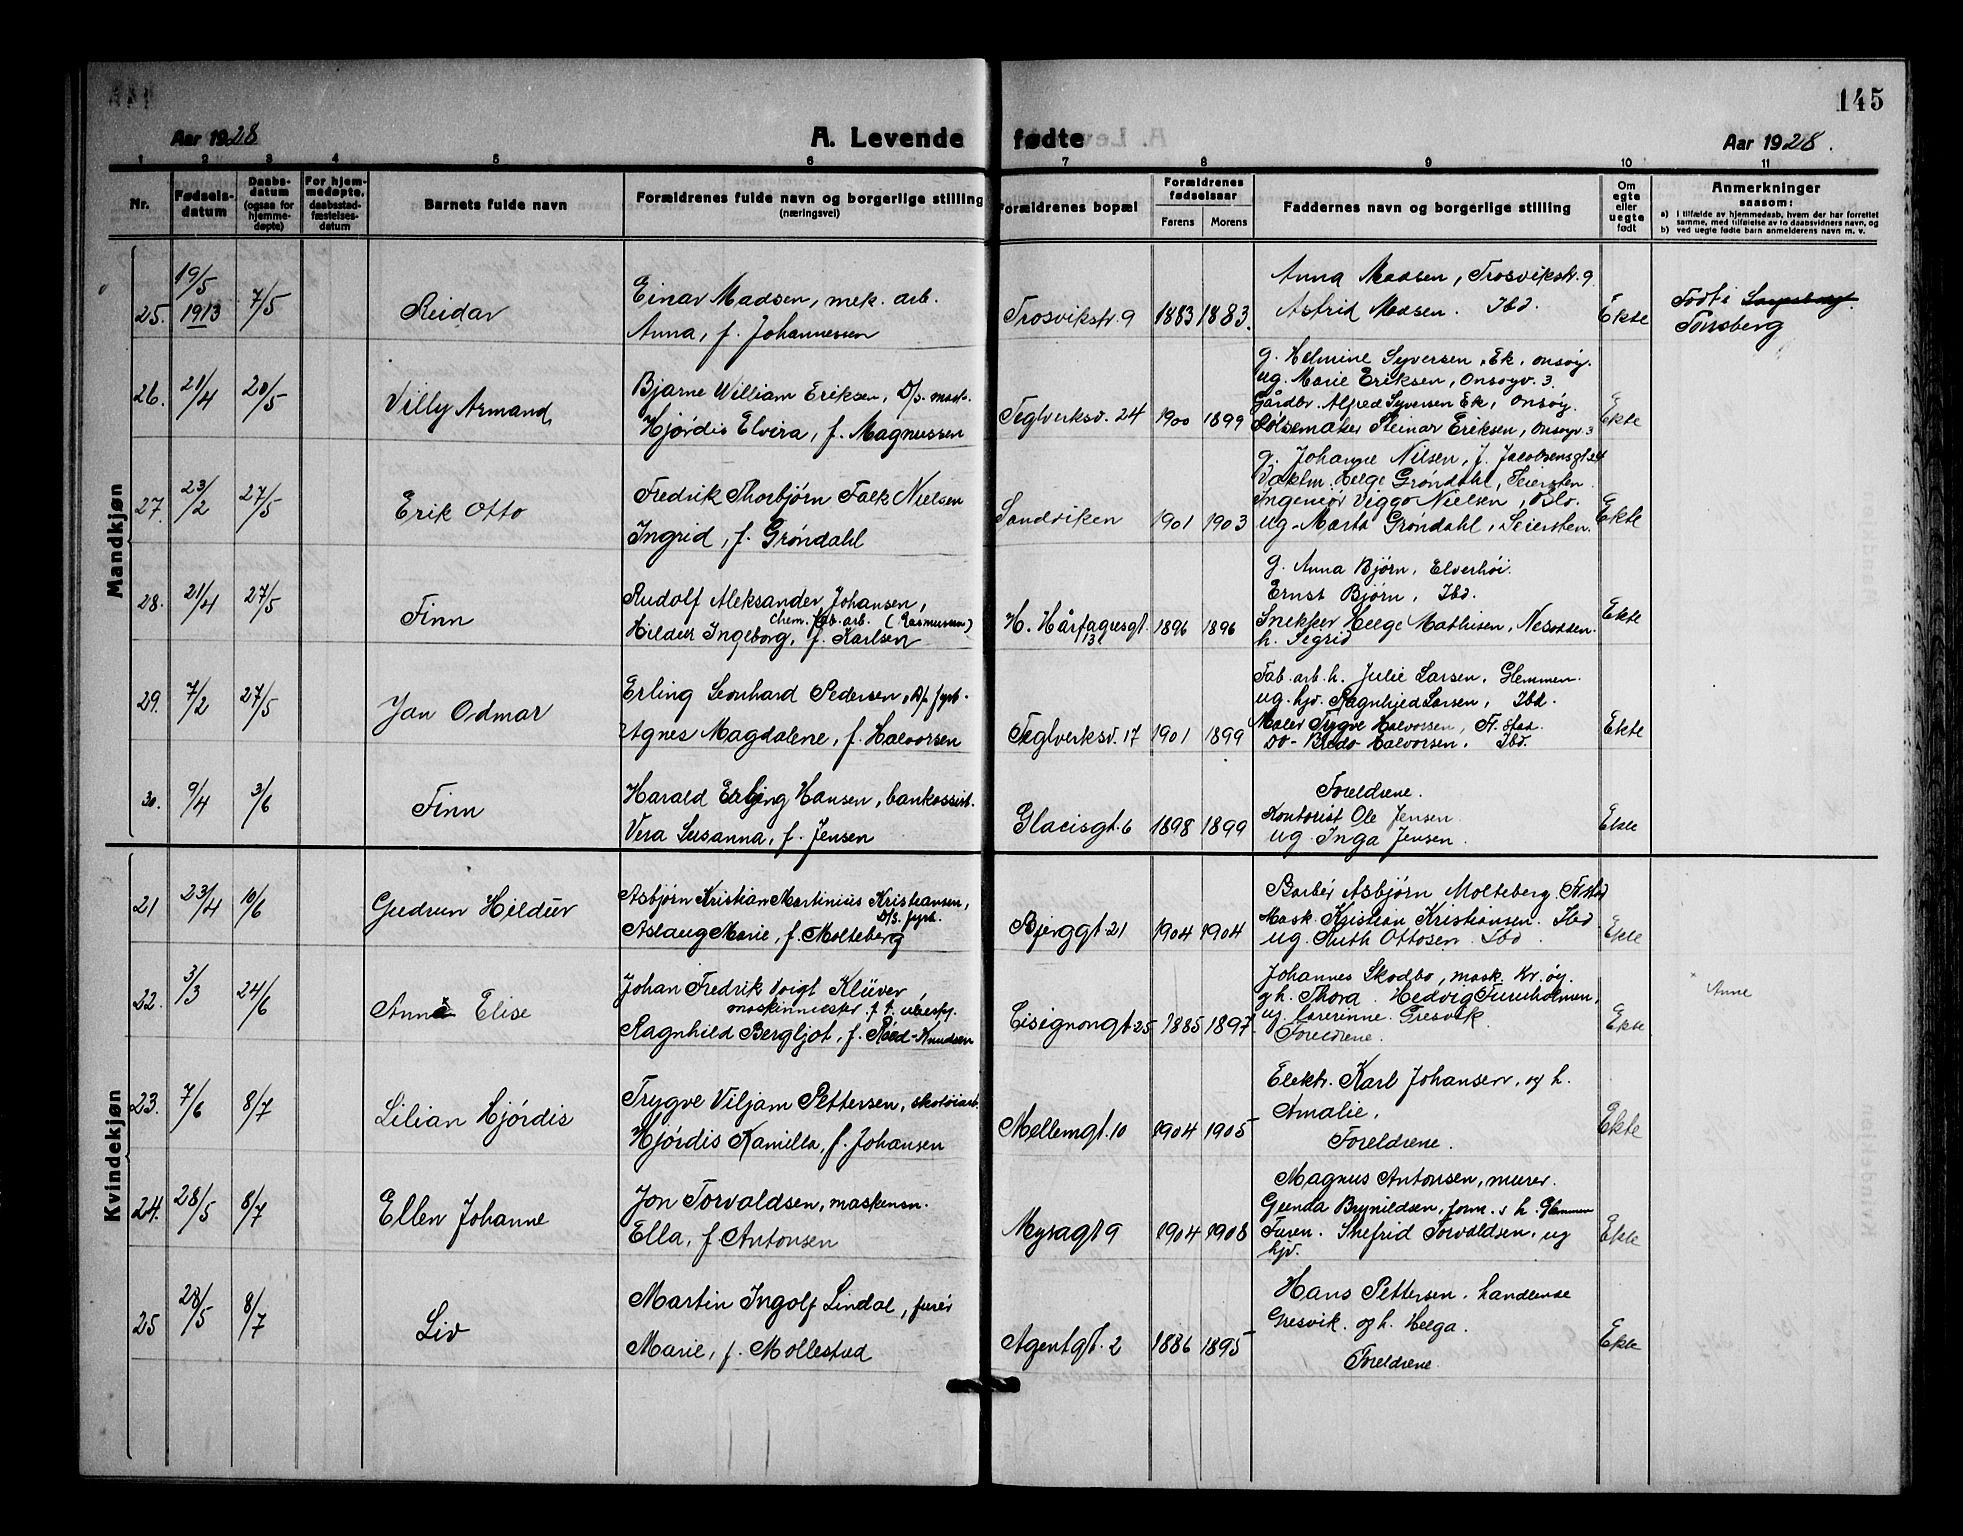 145
Aar 1928
A. Levende fødte
Aar 1928.
1 2 3 4 5 6 7 8 9 10 11
Nr.
Fødselsdatum
Daabsdatum (ogsaa for hjemmedøpte)
For hjemmedøpte, daabsstadfæstelsesdatum
Barnets fulde navn
Forældrenes fulde navn og borgerlige stilling
(næringsvei)
Forældrenes bopæl
Forældrenes fødselsaar
Farens
Morens
Faddernes navn og borgerlige stilling
Om egte eller uegte født
Anmerkninger
saasom:
a) i tilfælde av hjemmedaab, hvem der har forrettet samme, med tilføielse av to daabsvidners navn, og
b) ved uegte fødte barn anmelderens navn m. v.
Mandkjøn
25. 19/5 1913 7/5 Reidar
Einar Madsen, mek. arb.
Anna, f. Johannessen
Trosvikstr. 9 1883 1883.
Anna Madsen, Trosvikstr. 9
Astrid Madsen. Ibd.
Ekte
Født i Sarpsborg.
Tønsberg
26. 21/4 20/5 Villy Armand
Bjarne William Eriksen, D/S. mask.
Hjørdis Elvira, f. Magnussen
Teglverksv. 24 1900 1899
g. Helmine Syversen, Ek, Onsøy.
ug. Marie Eriksen, Onsøyv. 3.
Gårdbr. Alfred Syversen Ek, Onsøy.
Pølsemaker Steinar Eriksen, Onsøyv. 3
Ekte
27. 23/2 27/5 Erik Otto
Fredrik Thorbjørn Falk Nielsen
Ingrid, f. Grøndahl
Sandviken 1901 1903
g. Johanne Nilsen, J. Jacobsensgt. 24
Vaktm. Helge Grøndahl, Seiersten.
Ingeniør Viggo Nielsen, Oslo.
ug. Marta Grøndahl, Seiersten.
Ekte
28. 21/4 27/5 Finn
Rudolf Aleksander Johansen,
chem. fab. arb. (Rasmussen)
Hilder Ingeborg, f. Karlsen
H. Hårfagresgt. 13c 1896 1896
g. Anna Bjørn, Elverhøi.
Ernst Bjørn, Ibd.
Snekker Helge Mathisen, Nesodden.
h. Sigrid
Ekte
29. 7/2 27/5 Jan Odmar
Erling Leonhard Pedersen, D/S fyrb.
Agnes Magdalene, f. Halvorsen
Teglverksv. 17 1901 1899
Fab. arb. h. Julie Larsen, Glemmen.
ug. hjv. Ragnhild Larsen, Ibd.
Maler Trygve Halvorsen, Fr. stad.
Do- Bredo Halvorsen, Ibd.
Ekte
30. 9/4 3/6 Finn
Harald Erling Hansen, bankassist.
Vera Susanna, f. Jensen
Glacisgt. 6 1898 1899
Foreldrene.
Kontorist Ole Jensen
ug. Inga Jensen.
Ekte
Kvindekjøn
21 23/4 10/6 Gudrun Hildur
Asbjørn Kristian Martinius Kristiansen,
D/S. fyrb.
Aslaug Marie, f. Molteberg
Bjerggt. 21 1904 1904
Barbér Asbjørn Molteberg. Fr.stad
Mask. Kristian Kristiansen. Ibd
ug. Ruth Ottosen. Ibd.
Ekte
22. 3/3 24/6 Anna Elise
Johan Fredrik Voigt Klüver,
maskinmester
Ragnhild Bergljot, f. Rød-Knudsen
Cisignongt 25 1885 1897.
Johannes Skodbo, mask. Kr.øy.
og h. Thora. Hedvig Furuholmen,
ug. lærerinne. Gresvik
Foreldrene.
Ekte
Anne
23. 7/6 8/7 Lilian Hjørdis
Trygve Viljam Pettersen, skotøiarb.
Hjørdis Kamilla, f. Johansen
Mellemgt. 10 1904 1905
Elektr. Karl Johansen, og h.
Amalie.
Foreldrene.
Ekte
24. 28/5 8/7 Ellen Johanne
Jon Torvaldsen, maskinsn.
Ella, f. Antonsen
Myragt 9 1904 1908
Magnus Antonsen, murer.
Gunda Brynildsen, form. s h. Glemmen
Furen. Snefrid Torvaldsen, ug
hjv.
Ekte
25 28/5 8/7 Liv
Martin Ingolf Lindal, furér
Marie, f. Mollestad
Agentgt. 2 1886 1895
Hans Pettersen. handlende
Gresvik. og h. Helga.
Foreldrene
Ekte